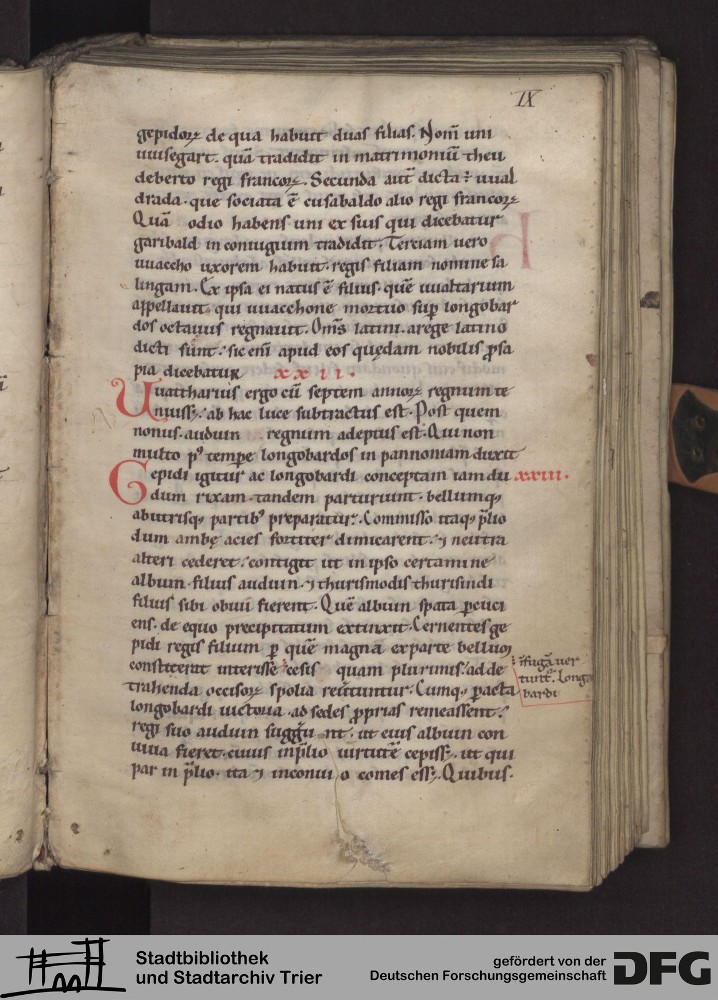 IX
gepidoꝝ de qua habuit duas filias. Nom̄ uni
uuisegart. quā tradidit in matrimoniū theu
deberto regi francoꝝ. Secunda aut̄ dicta ⁊ uual
drada. que sociata ē cusabaldo alio regi francoꝝ
Quā odio habens uni ex suis qui dicebatur
garibald in coniugium tradidit. Terciam uero
uuaccho uxorem habuit. regis filiam nomine sa
lingam. Ex ipsa ei natus ē filius. quē uualtarium
appellauit. qui uuacchone mortuo sup̄ longobar
dos octauus regnauit. Om̄s latini. a rege latino
dicti sunt. sic eni apud eos quędam nobilis ꝓsa
pia dicebatur xxii.
Uuattharius ergo cū septem annoꝝ regnum te
nuiss; ab hac luce subtractus est. Post quem
nonus. auduin regnum adeptus est. Qui non
multo p⁹ tempe longobardos in pannoniam duxit
Gepidi igitur ac longobardi conceptam iam du xxiii.
dum rixam. tandem parturiunt. bellumq;
ab utrisq; partib⁹ preparatur. Commisso itaq; p̄lio
dum ambę acies fortiter dimicarent. ⁊ neutra
alteri cederet. contigit ut in ipso certamine
albuin. filius auduin. ⁊ thurismodis thurisindi
filius sibi obuii fierent. Quē albuin spata ꝑcuci
ens. de equo precipitatum extinxit. Cernentes ge
pidi regis filium ꝑ quē magna ex parte bellum
constiterat interisse cesis quam plurimis. ad de
trahenda occisoꝝ spolia reūtuntur. Cumq; ꝑacta
longobardi uictoria. ad sedes ꝓprias remeassent.
regi suo auduin suggūnt. ut eius albuin con
uiua fieret. cuius in p̄lio uirtutē cepiss; ut qui
par in p̄lio. ita ⁊ in conuiuio comes ess;. Quibus.
ī fugā uer
tunt̄. longo
bardi
Stadtbibliothek
und Stadtarchiv Trier
gefördert von der
Deutschen Forschungsgemeinschaft
DFG